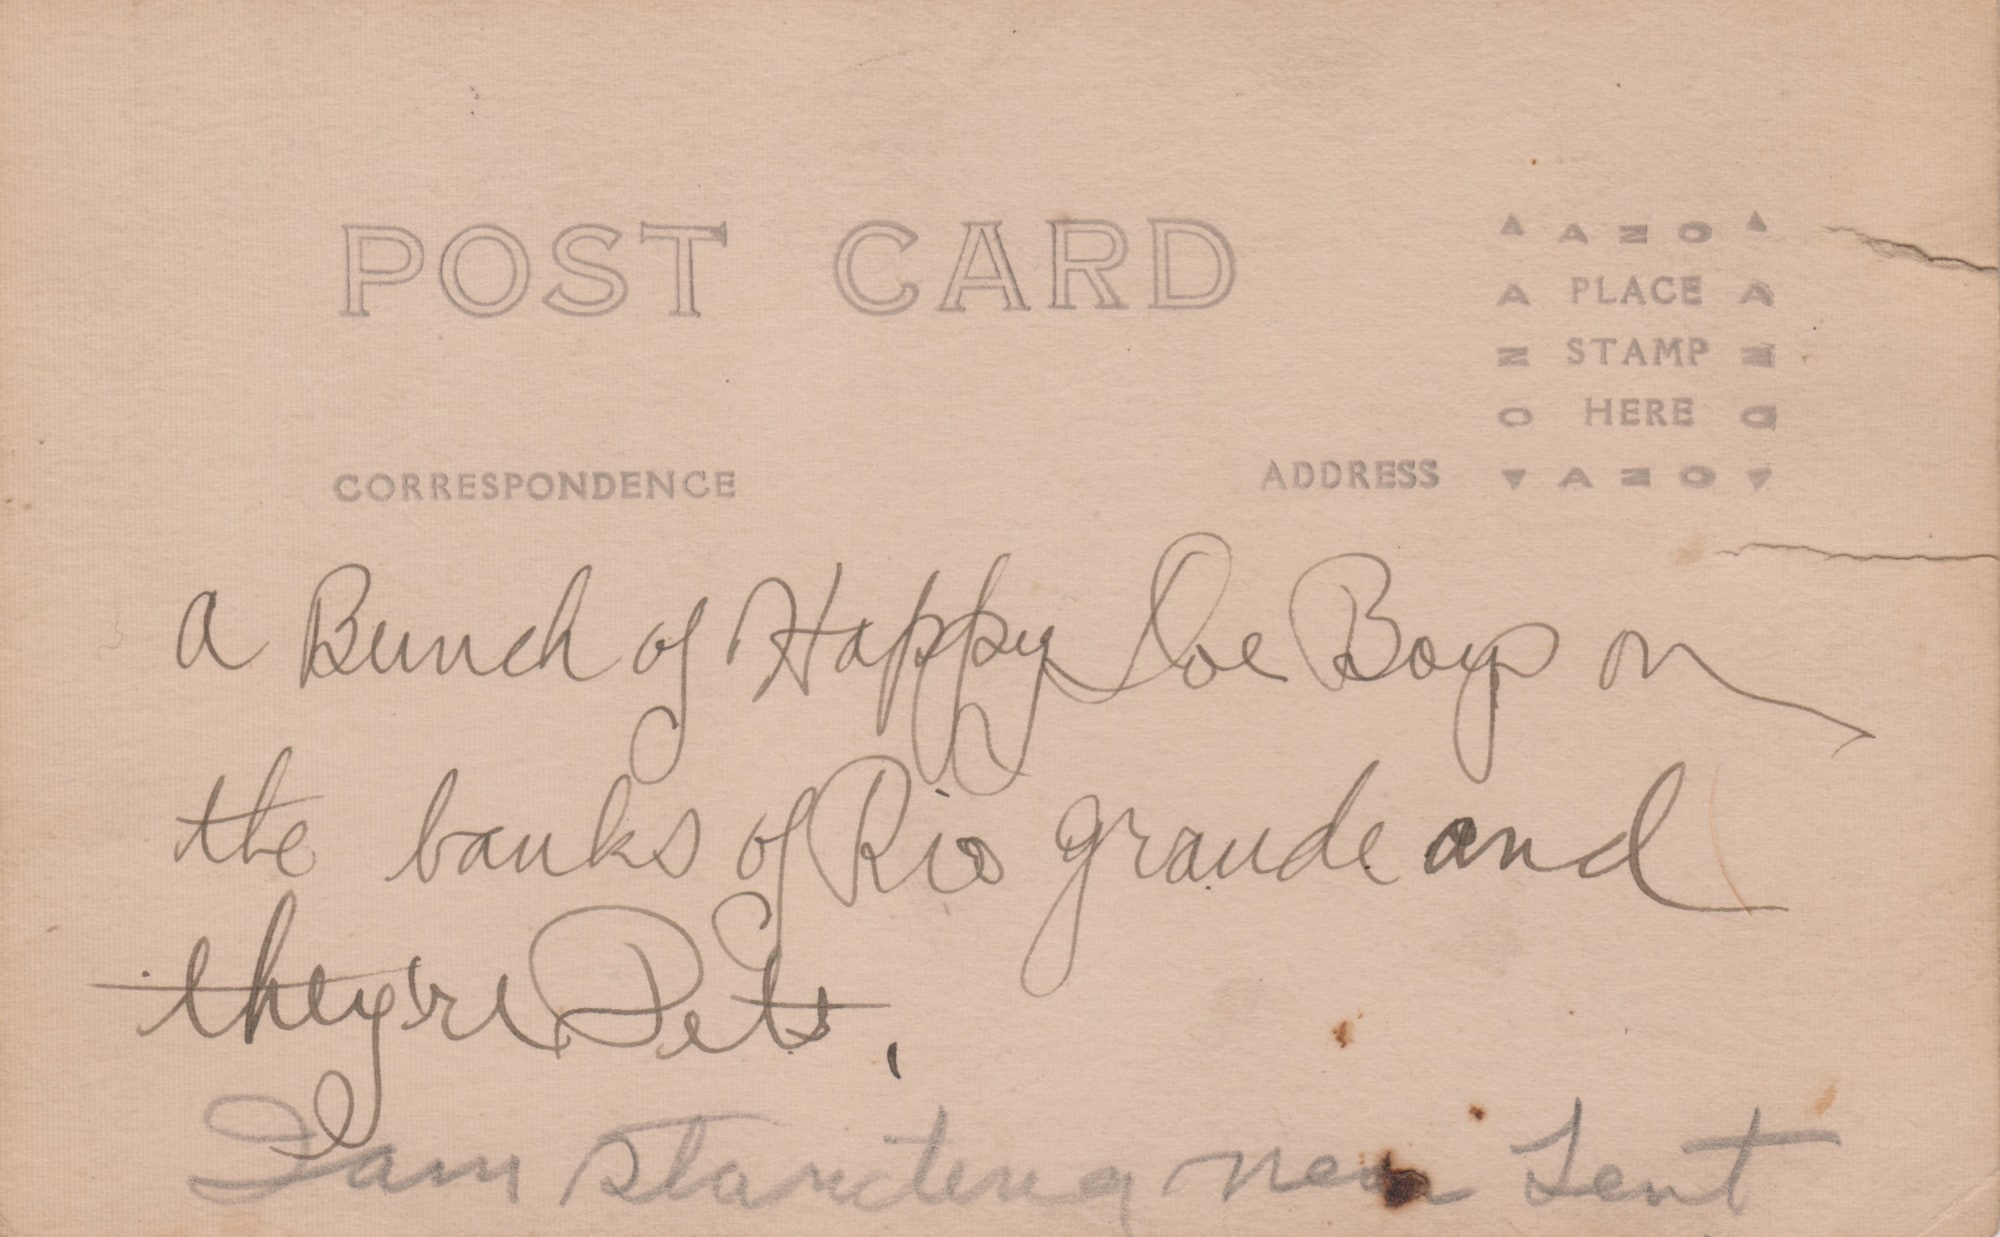 POST CARD
▲ AZO ▲
AZO PLACE STAMP HERE AZO
▼ AZO ▼
CORRESPONDENCE
ADDRESS
a Bunch of Happy Doe Boys on
the banks of Rio grande and
they're Pets.
I am standing near Tent